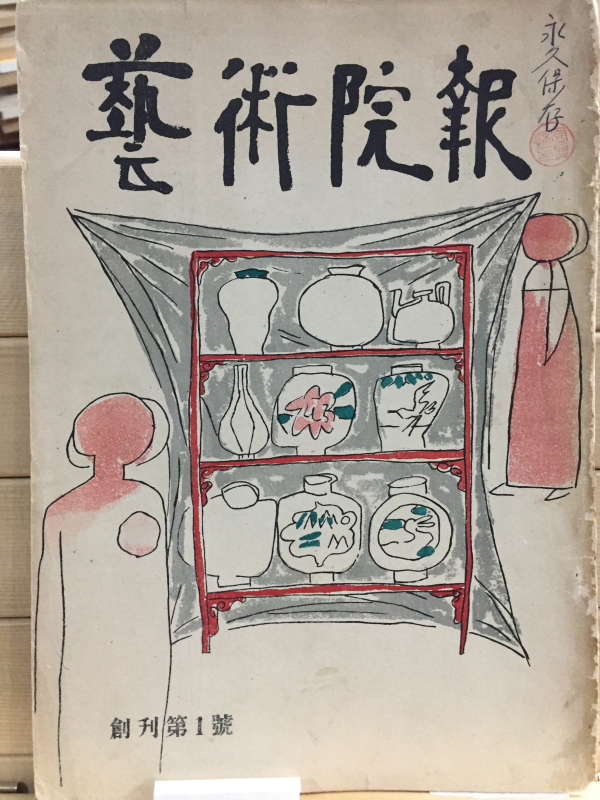 永久保存
藝術院報
創刊第1號